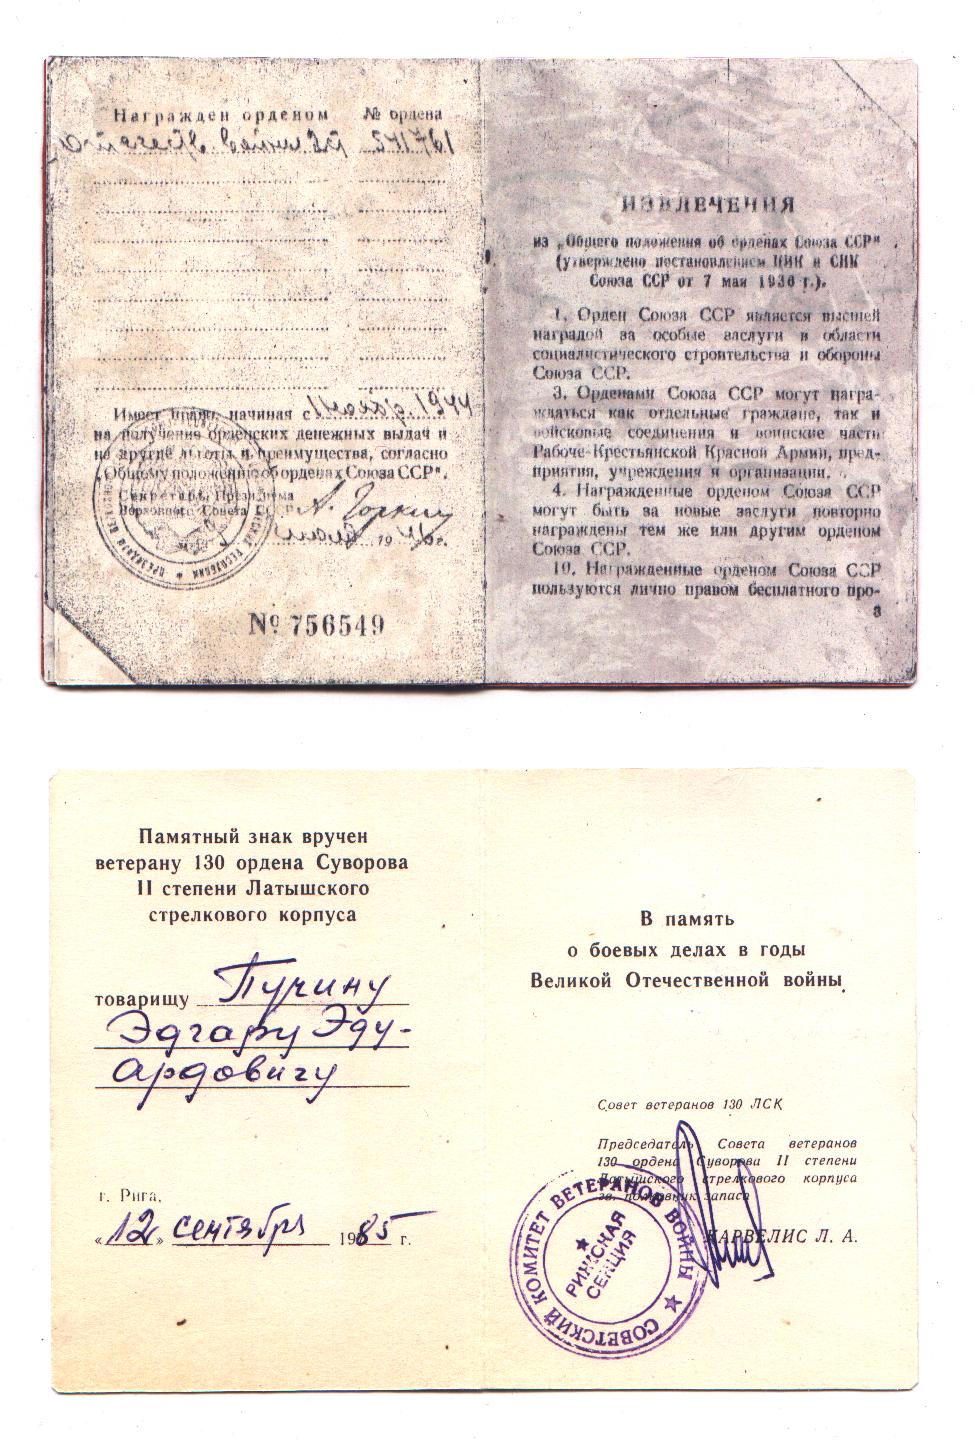 Награжден орденом № ордена
Отечеств. войны II ст.
Имеет право, начиная с 1944
на получение орденских денежных выдач и
на другие льготы и преимущества, согласно
„Общему положению об орденах Союза ССР".
Секретарь Президиума
Верховного Совета СССР А. Горкин
19 г.
№ 756549
ИЗВЛЕЧЕНИЯ
из „Общего положения об орденах Союза ССР"
(утверждено постановлением ЦИК и СНК
Союза ССР от 7 мая 1936 г.).
1. Орден Союза ССР является высшей
наградой за особые заслуги в области
социалистического строительства и обороны
Союза ССР.
3. Орденами Союза ССР могут награ-
ждаться как отдельные граждане, так и
войсковые соединения и воинские части
Рабоче-Крестьянской Красной Армии, пред-
приятия, учреждения и организации.
4. Награжденные орденом Союза ССР
могут быть за новые заслуги повторно
награждены тем же или другим орденом
Союза ССР.
10. Награжденные орденом Союза ССР
пользуются лично правом бесплатного про-
Памятный знак вручен
ветерану 130 ордена Суворова
II степени Латышского
стрелкового корпуса
товарищу Пучину
Эдгару Эду-
ардовичу
г. Рига,
«12» сентября 1985 г.
В память
о боевых делах в годы
Великой Отечественной войны.
Совет ветеранов 130 ЛСК
Председатель Совета ветеранов
130 ордена Суворова II степени
Латышского стрелкового корпуса
гв. полковник запаса
КАРВЕЛИС Л. А.
СОВЕТСКИЙ КОМИТЕТ ВЕТЕРАНОВ ВОЙНЫ
РИЖСКАЯ
СЕКЦИЯ